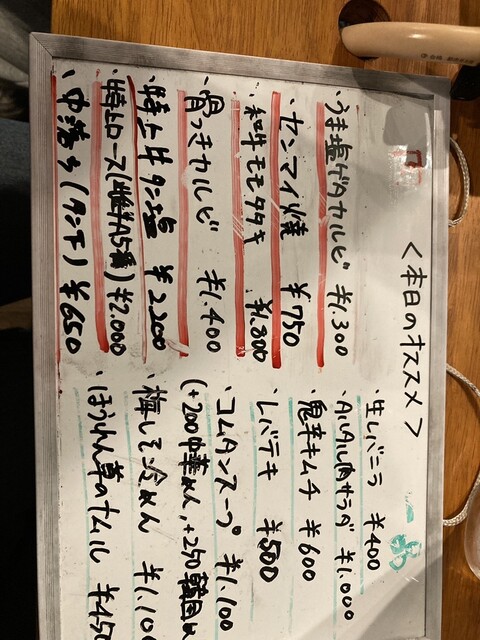 <本日のオススメ>
・うま塩ゲタカルビ ¥1.300
・センマイ焼 ¥750
・和牛モモタタキ ¥1.800
・骨つきカルビ ¥1.400
・特上牛タン塩 ¥2200
・特上ロース ¥2000
・中落ち(タン下) ¥650
生レバニラ ¥400
肉サラダ ¥1.000
鬼辛キムチ ¥600
・レバテキ ¥500
・コムタンスープ ¥1.100
(+200中華めん,+250韓国
・梅しそ冷めん ¥1.10
・ほうれん草のナムル ¥450